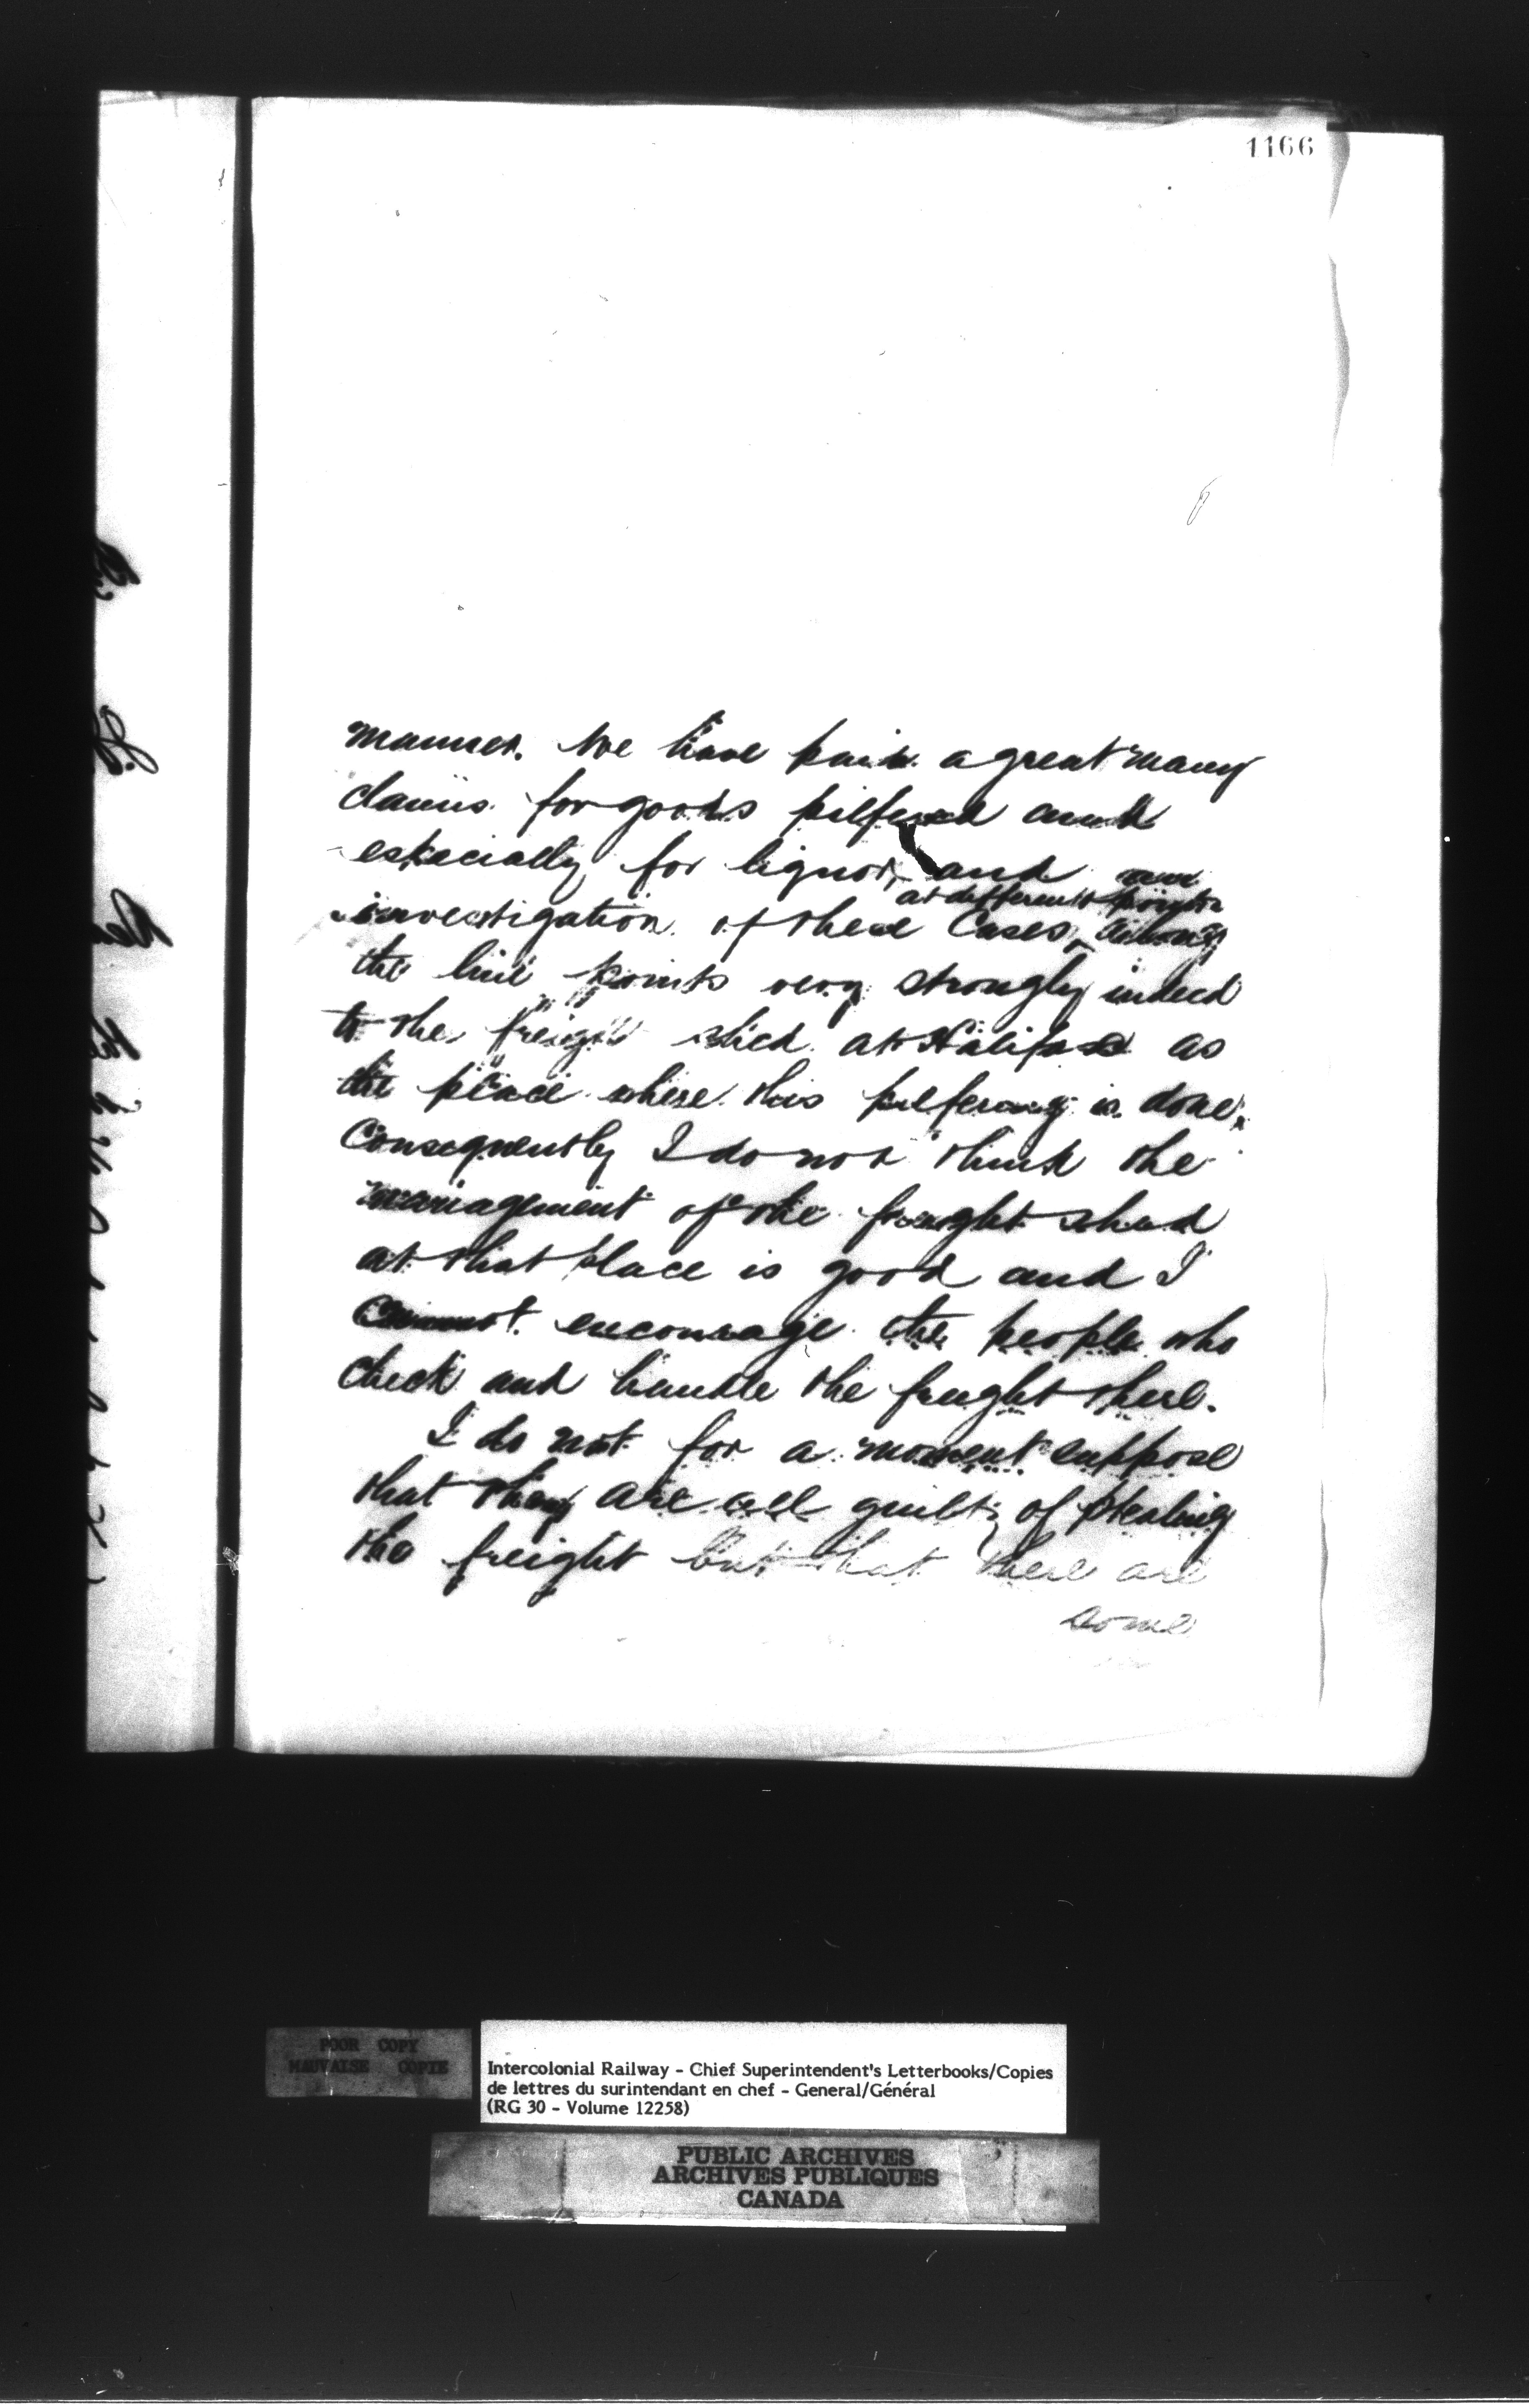 1166
manner. We have paid a great many
claims for goods pilfered and
especially for liquor, and an
at different points
investigation of these Cases, along
the line points very strongly indeed
to the freight shed at Halifax as
the place where this pilfering is done,
Consequently I do not think the
management of the freight shed
at that place is good and I
Cannot encourage the people who
check and handle the freight there.
I do not for a moment suppose
that they are all guilty of stealing
the freight but that there are
some
POOR COPY
MAUVAISE COPIE
Intercolonial Railway - Chief Superintendent's Letterbooks/Copies
de lettres du surintendant en chef - General/Général
(RG 30 - Volume 12258)
PUBLIC ARCHIVES
ARCHIVES PUBLIQUES
CANADA